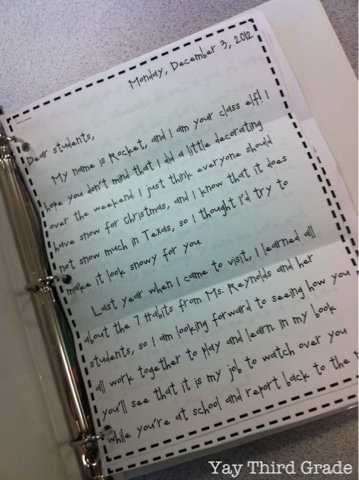 Monday, December 3, 2012
Dear students,
My name is Rocket, and I am your class elf! I
hope you don't mind that I did a little decorating
over the weekend. I just think everyone should
have snow for Christmas, and I know that it does
not snow much in Texas, so I thought I'd try to
make it look snowy for you.
Last year when I came to visit, I learned all
about the 7 Habits from Ms. Reynolds and her
students, so I am looking forward to seeing how you
all work together to play and learn in my book
you'll see that it is my job to watch over you
while you're at school and report back to the
Yay Third Grade